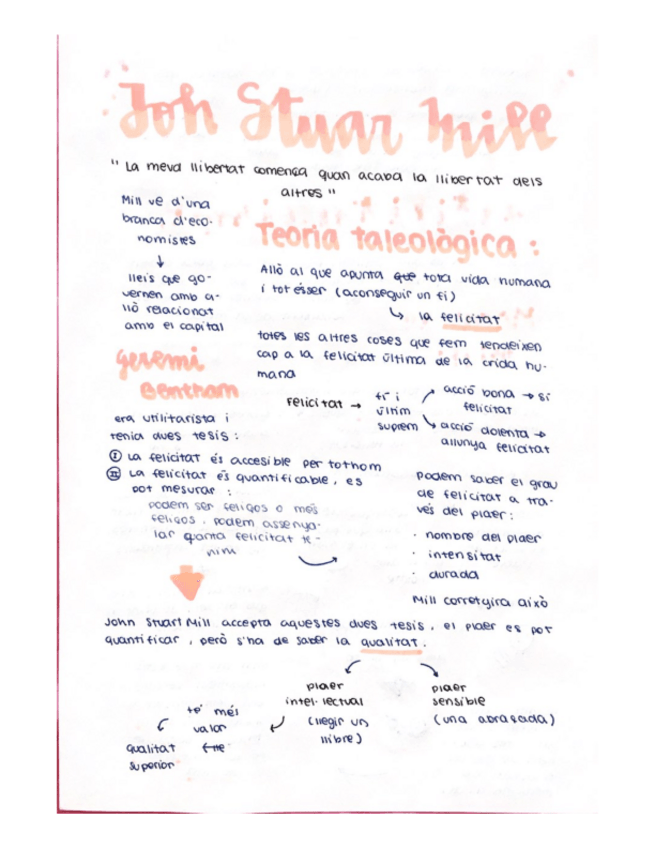 Joh Stuar Mill
" La meva llibertat comença quan acaba la llibertat dels
altres "
Mill ve d'una
branca d'eco-
nomistes
↓
lleis que go-
vernen amb a-
llò relacionat
amb el capital
Teoria taleològica :
Allò al que apunta que tota vida humana
i tot ésser (aconseguir un fi)
↳ la felicitat
totes les altres coses que fem tendeixen
cap a la felicitat última de la vida hu-
mana
felicitat →
fi i
últim
suprem
acció bona → sí
felicitat
acció dolenta →
allunya felicitat
Geremi
Bentham
era utilitarista i
tenia dues tesis :
I La felicitat és accesible per tothom
II La felicitat és quantificable, es
pot mesurar :
podem ser feliços o més
feliços. podem assenya-
lar quanta felicitat te-
nim
podem saber el grau
de felicitat a tra-
vés del plaer :
· nombre del plaer
· intensitat
· durada
Mill corretgira això
John Stuart Mill accepta aquestes dues tesis, el plaer es pot
quantificar, però s'ha de saber la qualitat.
plaer
intel·lectual
(llegir un
llibre)
plaer
sensible
(una abraçada)
té més
valor
qualitat
superior